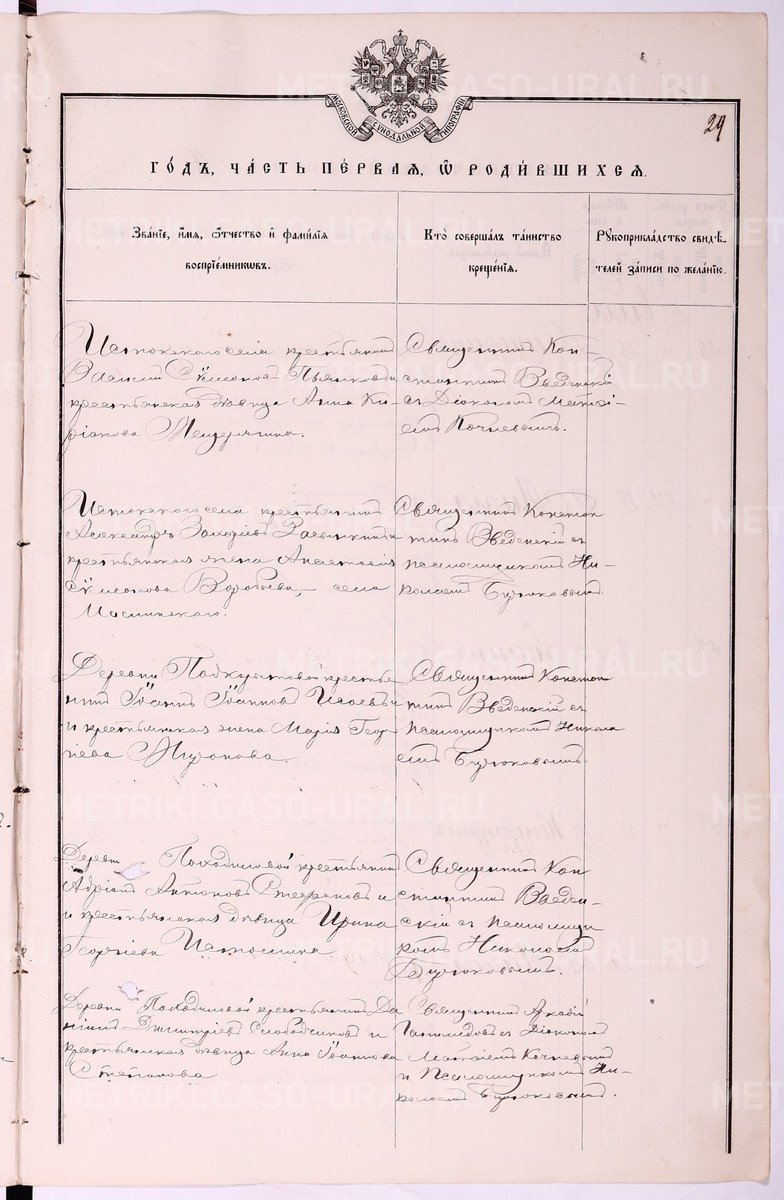 МОСКОВСКОЙ СѴНОДАЛЬНОЙ ТИПОГРАФІИ
29
ГОДЪ, ЧАСТЬ ПЕРВАЯ, Ѡ РОДИВШИХСЯ.
Званіе, имя, отчество и фамилія
воспріемниковъ.
Кто совершалъ таинство
крещенія.
Рукоприкладство свидѣ-
телей записи по желанію.
Истокскаго села крестьянинъ
Сѵмеоновъ Пьянковъ и
крестьянская дѣвица Анна Ки-
ріакова Мещерягина.
Священникъ Кон-
стантинъ Введенскій
съ Діакономъ Матѳі-
емъ Кочневымъ.
Истокскаго села крестьянинъ
Александръ Захаріевъ
крестьянская жена Анастасія
Сѵмеонова Воробьева, села
Маминскаго.
Священникъ Констан
тинъ Введенскій съ
псаломщикомъ Ни-
колаемъ Бирюковымъ
Деревни Подкорытовой крестья
нинъ Іоаннъ Іоанновъ
и крестьянская жена Марія Геор
гіева
Священникъ Констан
тинъ Введенскій съ
псаломщикомъ Никола
емъ Бирюковымъ.
Деревни Походиловой крестьянинъ
Адріанъ Антоновъ Стефановъ и
и крестьянская дѣвица Ирина
Георгіева Истомина
Священникъ Кон
стантинъ Введен-
скій съ псаломщи
комъ Николаемъ
Бирюковымъ.
Деревни Походиловой крестьянинъ Да
ніилъ Димитріевъ Слободчиковъ и
крестьянская дѣвица Анна Іоаннова
Степанова
Священникъ Аркадій
съ Діакономъ
Матѳіемъ Кочневымъ
и Псаломщикомъ Ни-
колаемъ Бирюковымъ.
METRIKI.GASO-URAL.RU